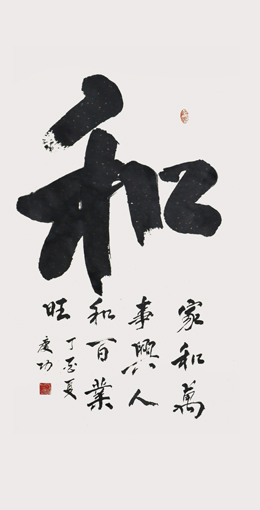 和
家和萬
事興人
和百業
旺
丁酉夏
慶功